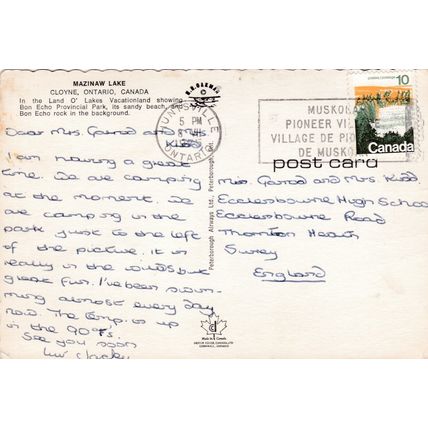 MAZINAW LAKE
CLOYNE, ONTARIO, CANADA
In the Land O' Lakes Vacationland showing
Bon Echo Provincial Park, its sandy beach, and
Bon Echo rock in the background.
HUNTSVILLE
5 PM
ONTARIO
MUSKOKA
PIONEER VIL
VILLAGE DE PIO
DE MUSKO
10
Canada
post card
Dear Mrs. Garrod and Mrs
Kidd,
I am having a great
time. We are camping
at the moment. We
are camping in the
park just to the left
of the picture. it is
really in the wilds but
great fun. I've been swim-
ming almost every day
The temp. is up
in the 90°s.
See you soon
luv
Mrs. Garrod and Mrs Kidd,
Ecclesbourne High School
Ecclesbourne Road
Thornton Heath
Surrey
England
Peterborough Airways Ltd., Peterborough,
Made in Canada